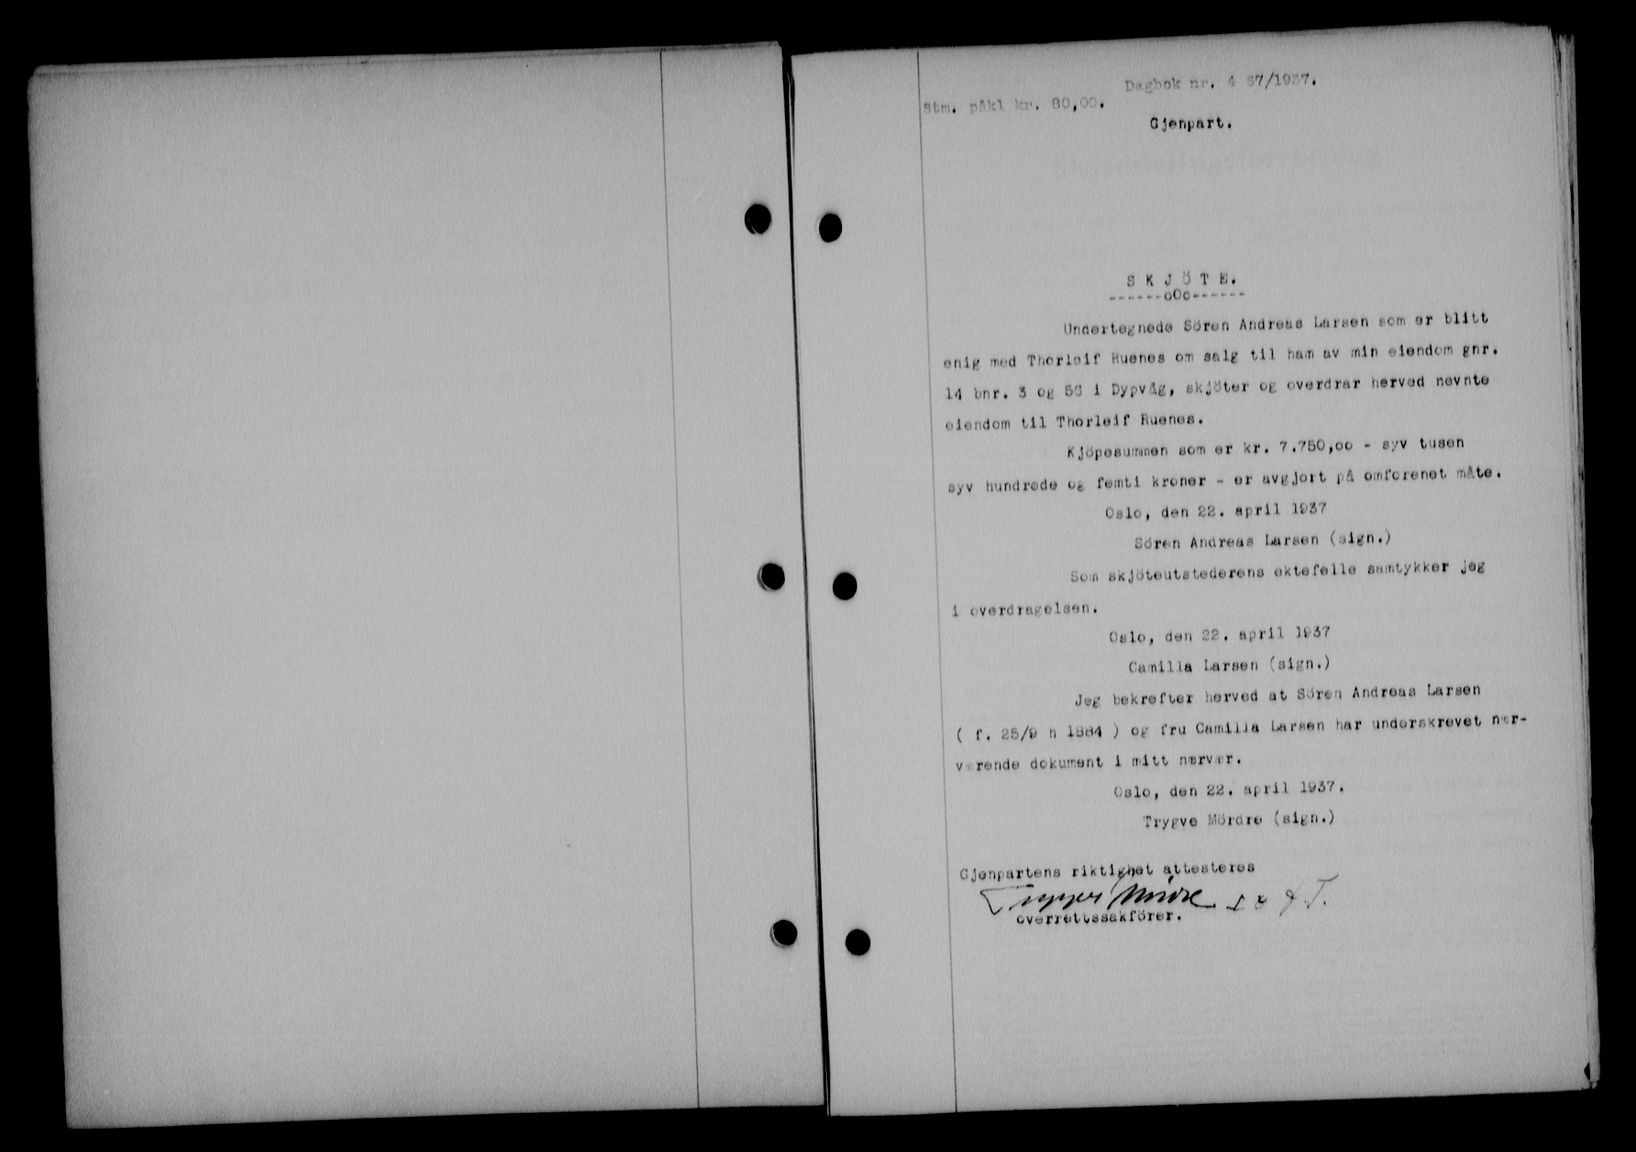 Dagbok nr. 4 67/1937.
Stm. påkl kr. 80,00.
Gjenpart.
S K J Ö T E.
------oOo------
Undertegnede Sören Andreas Larsen som er blitt
enig med Thorleif Ruenes om salg til ham av min eiendom gnr.
14 bnr. 3 og 56 i Dypvåg, skjöter og overdrar herved nevnte
eiendom til Thorleif Ruenes.
Kjöpesummen som er kr. 7.750,oo - syv tusen
syv hundrede og femti kroner - er avgjort på omforenet måte.
Oslo, den 22. april 1937
Sören Andreas Larsen (sign.)
Som skjöteutstederens ektefelle samtykker jeg
i overdragelsen.
Oslo, den 22. april 1937
Camilla Larsen (sign.)
Jeg bekrefter herved at Sören Andreas Larsen
( f. 25/9 h 1884 ) og fru Camilla Larsen har underskrevet nær-
værende dokument i mitt nærvær.
Oslo, den 22. april 1937.
Trygve Mördre (sign.)
Gjenpartens riktighet attesteres
Trygve Mördre
overrettssakförer.